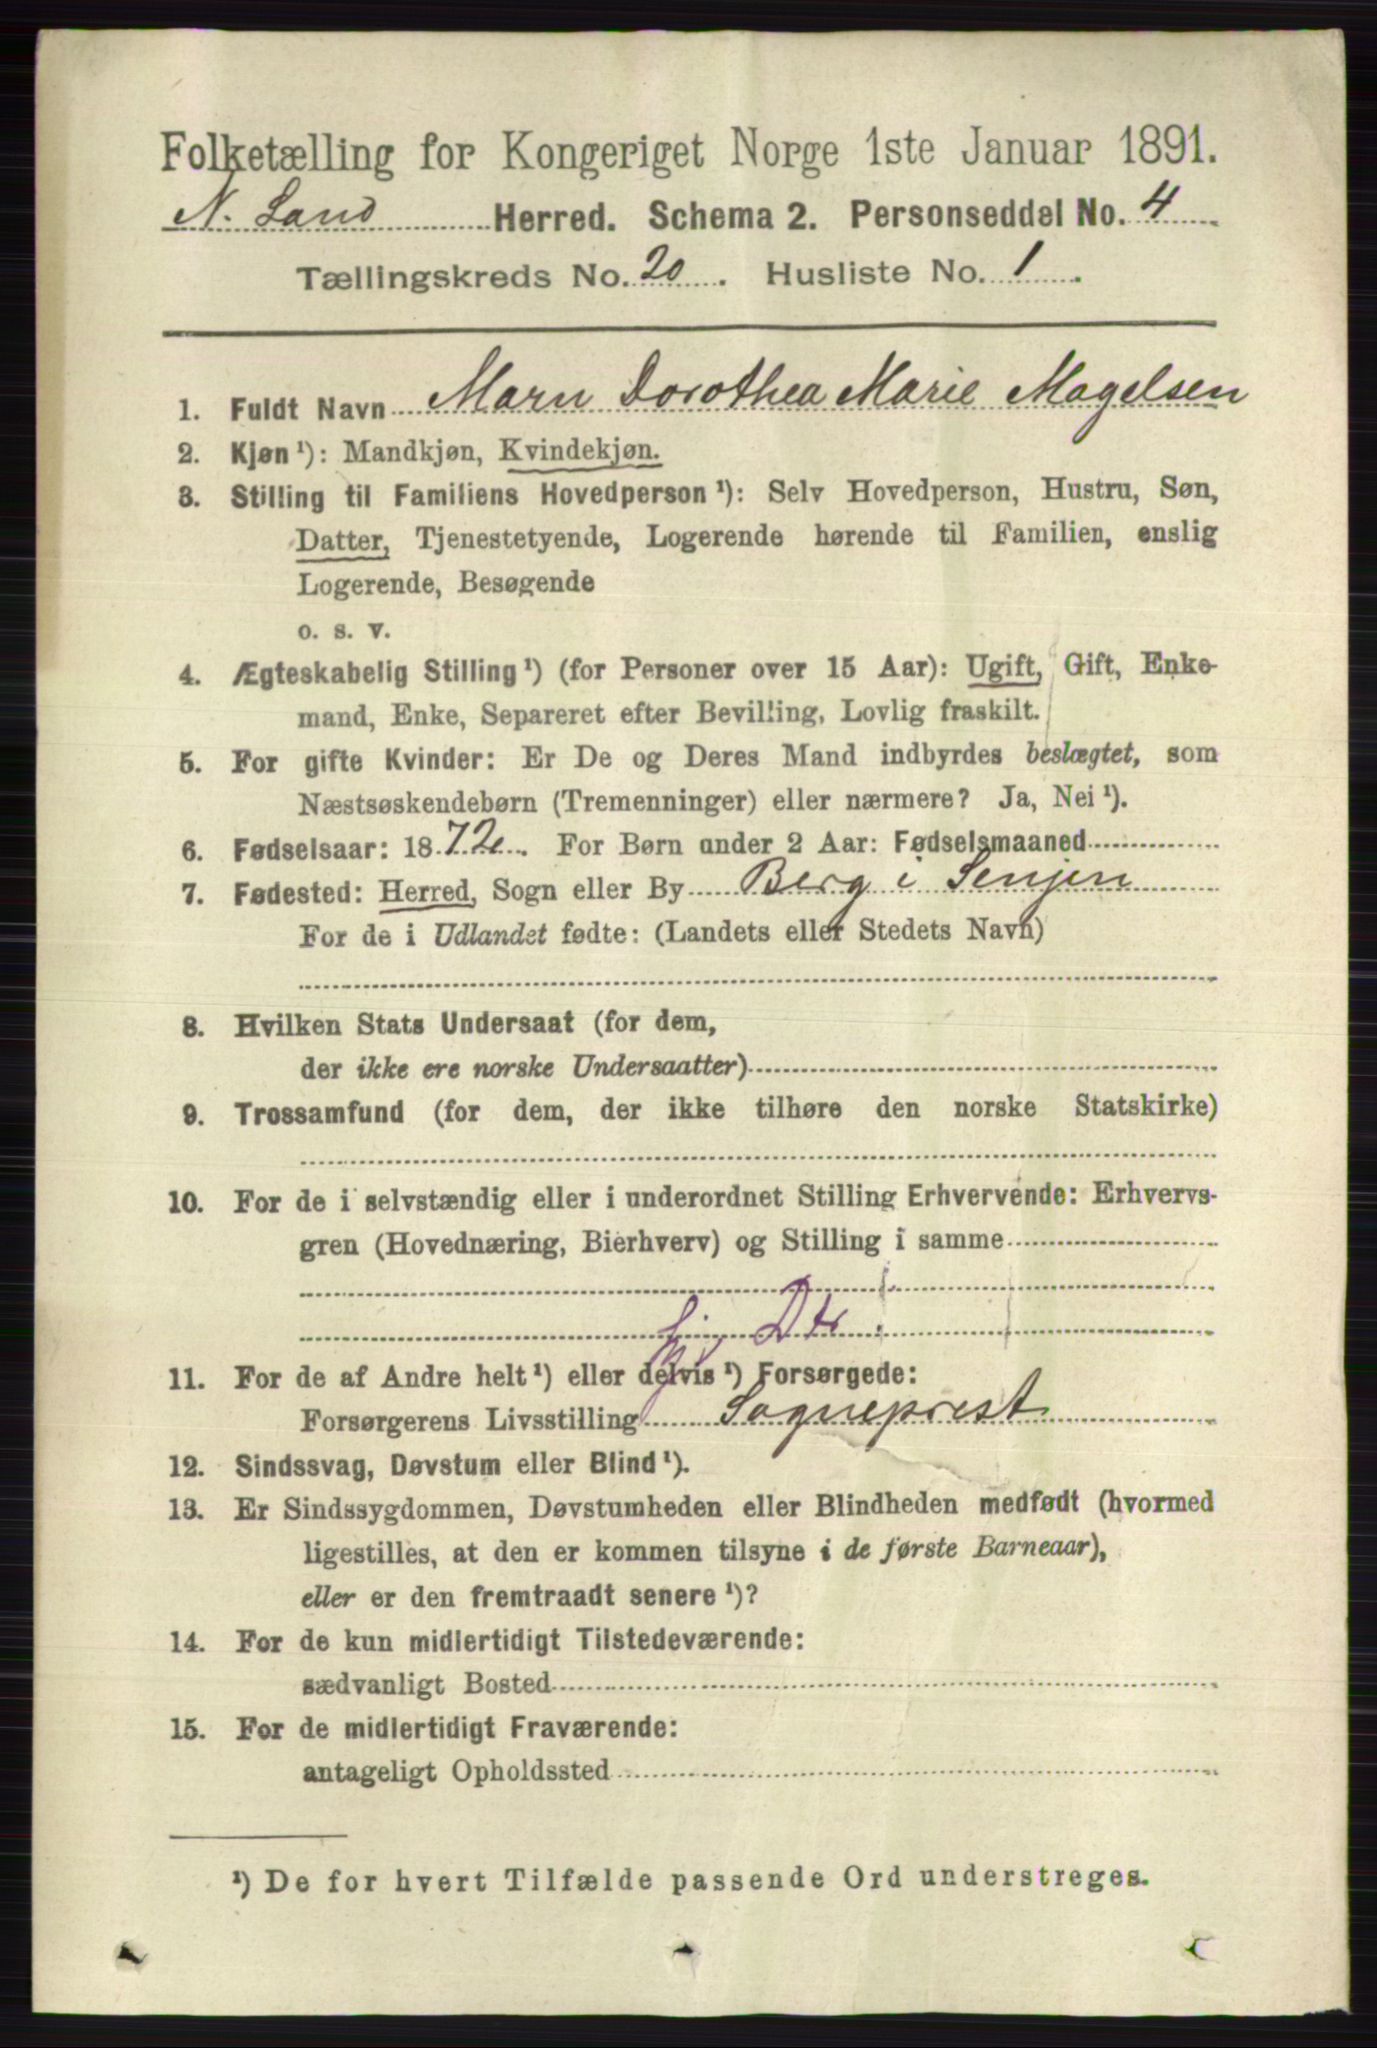 Folketælling for Kongeriget Norge 1ste Januar 1891.
N. Land Herred. Schema 2. Personseddel No. 4
Tællingskreds No. 20. Husliste No. 1.
1. Fuldt Navn Maren Dorothea Marie Magelsen
2. Kjøn¹): Mandkjøn, Kvindekjøn.
3. Stilling til Familiens Hovedperson¹): Selv Hovedperson, Hustru, Søn,
Datter, Tjenestetyende, Logerende hørende til Familien, enslig
Logerende, Besøgende
o. s. v.
4. Ægteskabelig Stilling¹) (for Personer over 15 Aar): Ugift, Gift, Enke-
mand, Enke, Separeret efter Bevilling, Lovlig fraskilt.
5. For gifte Kvinder: Er De og Deres Mand indbyrdes beslægtet, som
Næstsøskendebørn (Tremenninger) eller nærmere? Ja, Nei¹).
6. Fødselsaar: 1872. For Børn under 2 Aar: Fødselsmaaned
7. Fødested: Herred, Sogn eller By Berg i Senjen
For de i Udlandet fødte: (Landets eller Stedets Navn)
8. Hvilken Stats Undersaat (for dem,
der ikke ere norske Undersaatter)
9. Trossamfund (for dem, der ikke tilhøre den norske Statskirke)
10. For de i selvstændig eller i underordnet Stilling Erhvervende: Erhvervs-
gren (Hovednæring, Bierhverv) og Stilling i samme
Dtr
11. For de af Andre helt¹) eller delvis¹) Forsørgede:
Forsørgerens Livsstilling Sogneprest
12. Sindssvag, Døvstum eller Blind¹).
13. Er Sindssygdommen, Døvstumheden eller Blindheden medfødt (hvormed
ligestilles, at den er kommen tilsyne i de første Barneaar),
eller er den fremtraadt senere¹)?
14. For de kun midlertidigt Tilstedeværende:
sædvanligt Bosted
15. For de midlertidigt Fraværende:
antageligt Opholdssted
¹) De for hvert Tilfælde passende Ord understreges.